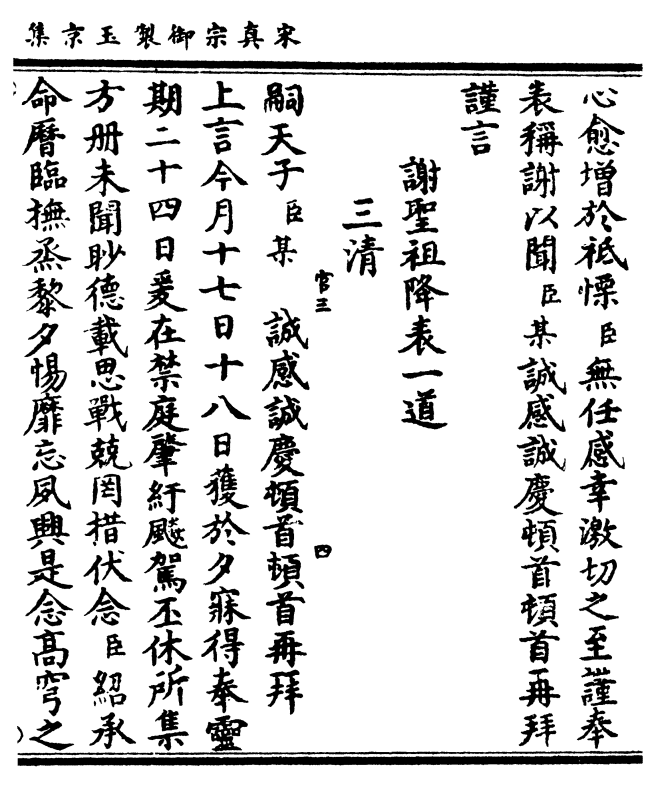 宋真宗御製玉京集
心愈增於祗慄臣無任感幸激切之至謹奉
表稱謝以聞臣某誠感誠慶頓首頓首再拜
謹言
謝聖祖降表一道
三清
官三
四
嗣天子臣某 誠感誠慶頓首頓首再拜
上言今月十七日十八日獲於夕寐得奉靈
期二十四日爰在禁庭肇紆飈駕丕休所集
方册未聞眇德載思戰兢罔措伏念臣紹承
命曆臨撫烝黎夕惕靡忘夙興是念高穹之